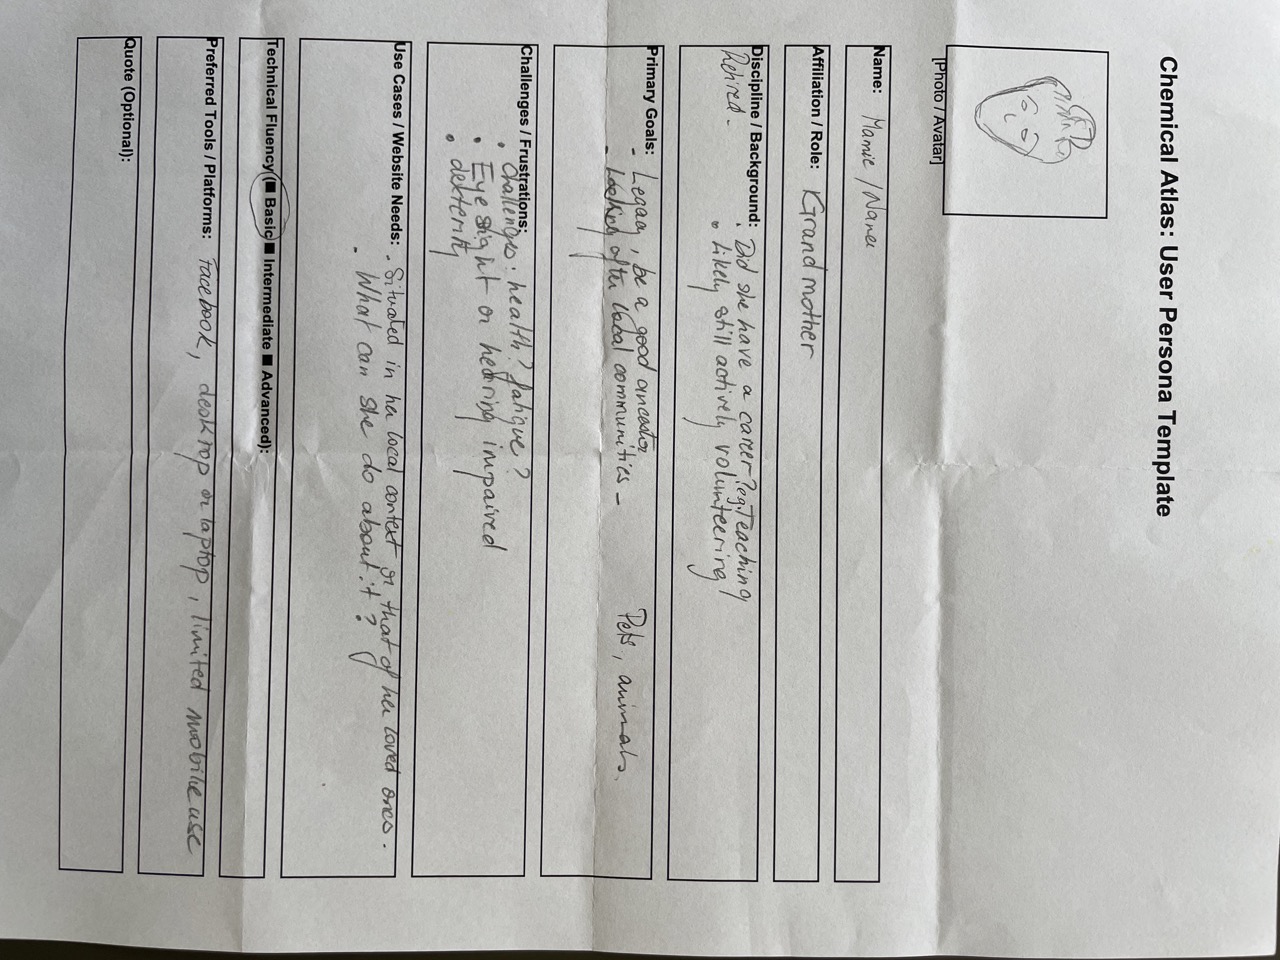 Chemical Atlas: User Persona Template
[Photo / Avatar]
Name: Mamie / Nana
Affiliation / Role: Grand mother
Discipline / Background: . Did she have a career? eg. Teaching
Retired. • Likely still actively volunteering
Primary Goals: - Legacy, be a good ancestor
- Looking after local communities - Pets, animals.
Challenges / Frustrations:
• Challenges: health? fatigue?
• Eye sight or hearing impaired
• dexterity
Use Cases / Website Needs: . Situated in her local context or that of her loved ones.
- What can she do about it?
Technical Fluency (■ Basic ■ Intermediate ■ Advanced):
Preferred Tools / Platforms: Facebook, desktop or laptop, limited mobile use
Quote (Optional):